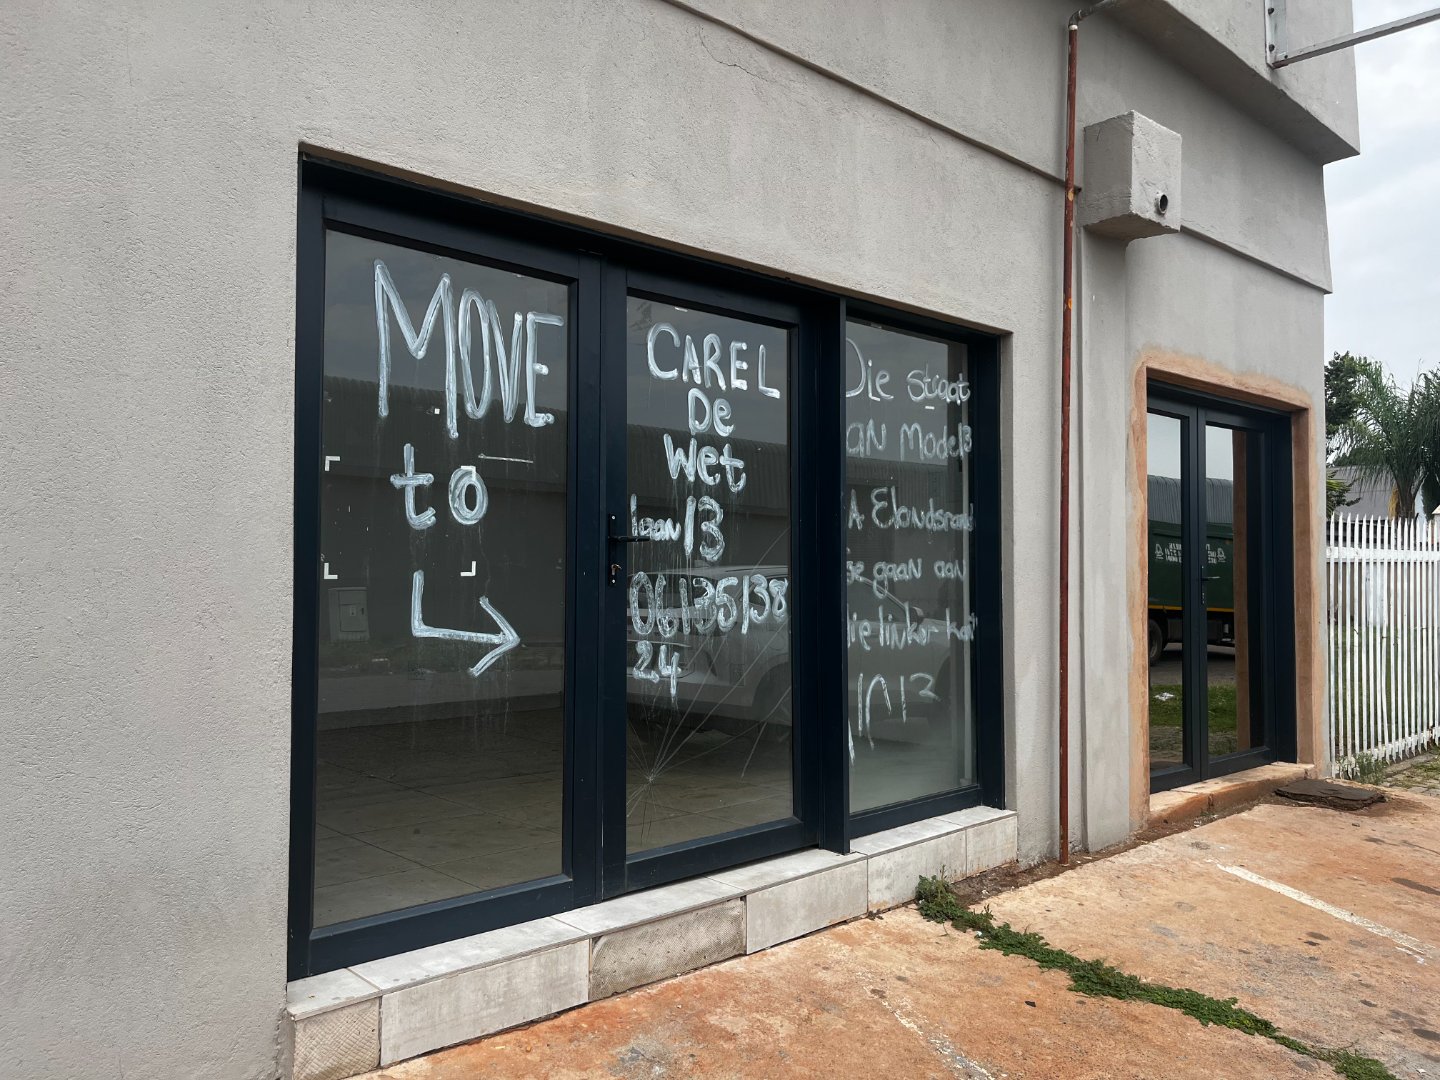 MOVE
to
CAREL
De
Wet
laan 13
06135138
24
Die straat
aN Model3
A Elandsrand
gaan aan
die linker
13